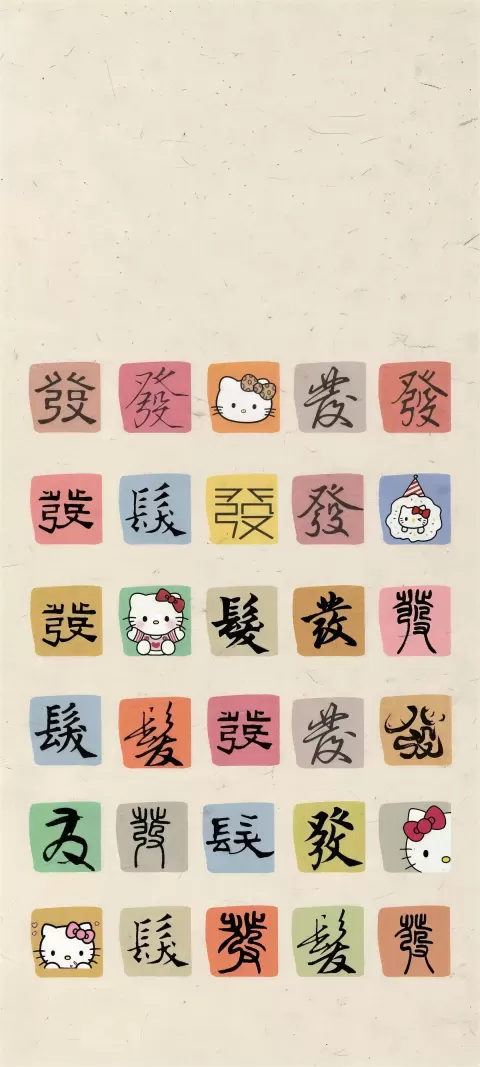 發 發 發 發
發 髮 發 發
發 髮 發 發
髮 髮 發 發 發
發 髮 發
髮 發 髮 發